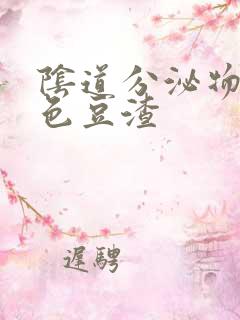 陰道分泌物
色豆渣
遲騁